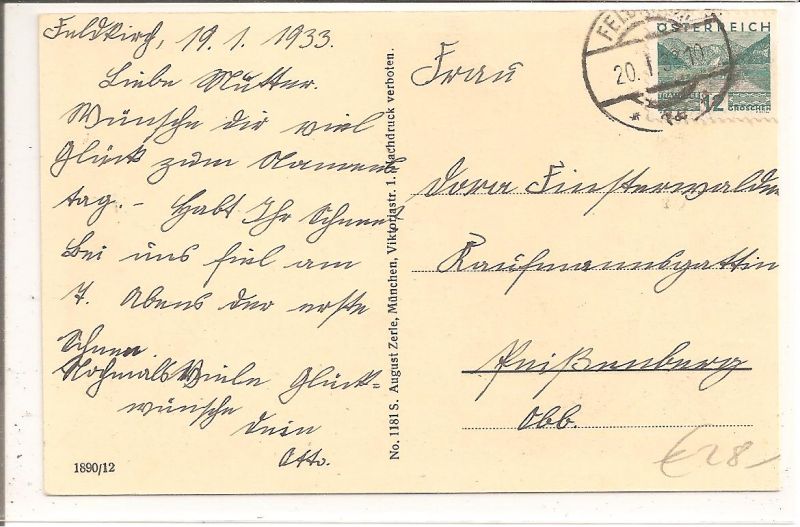 Feldkirch, 19.1.1933.
Liebe Mutter.
Wünsche dir viel
Glück zum Namens
tag.- Habt Ihr Schnee?
Bei uns fiel am
7. Abens der erste
Schnee.
Nochmals Viele Glück=
wünsche
Dein
Otto.
1890/12
No. 1181 S. August Zerle, München, Viktoriastr. 1. Nachdruck verboten.
ÖSTERREICH
20. I. 33
12
GROSCHEN
Frau
Dora Finsterwalder
Kaufmannsgattin
Peißenberg
Obb.
€28-